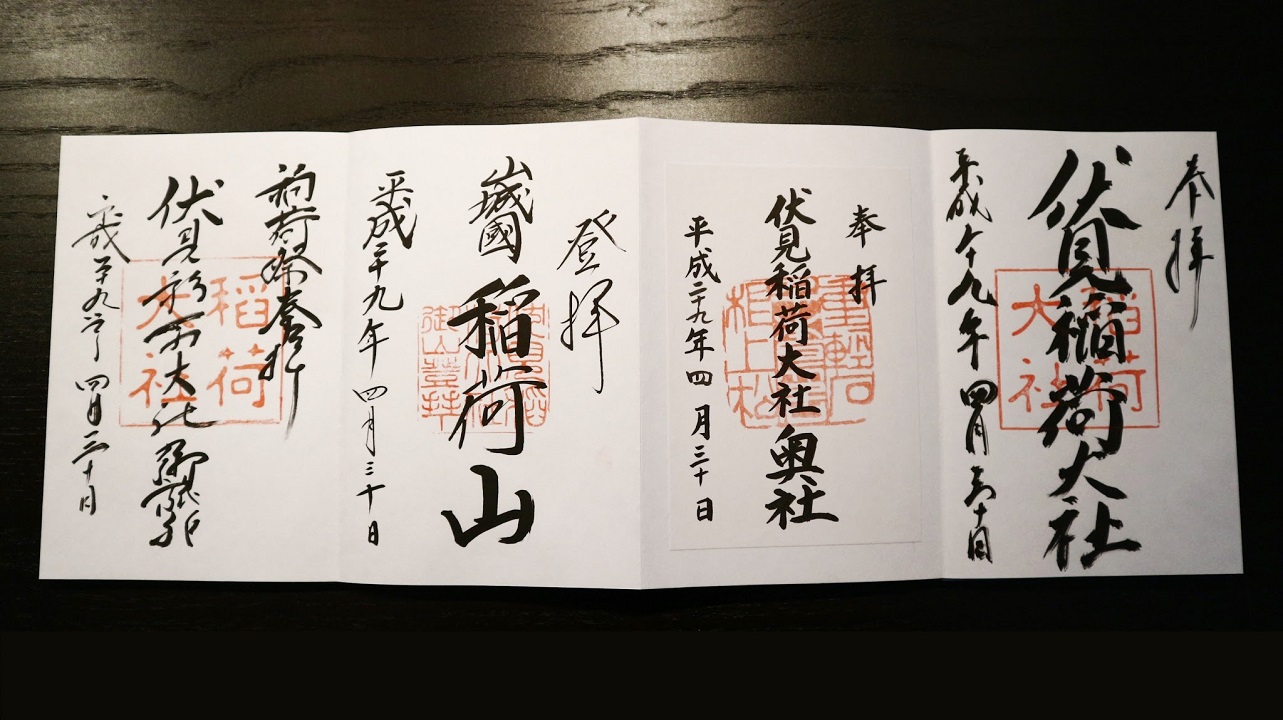 奉拝
伏見稲荷大社
平成二十九年四月三十日
稲荷
大社
奉拝
伏見稲荷大社奥社
平成二十九年四月三十日
登拝
山城國
稲荷山
平成二十九年四月三十日
稲荷祭奉拝
伏見稲荷大社御旅所
平成二十九年四月三十日
稲荷
大社